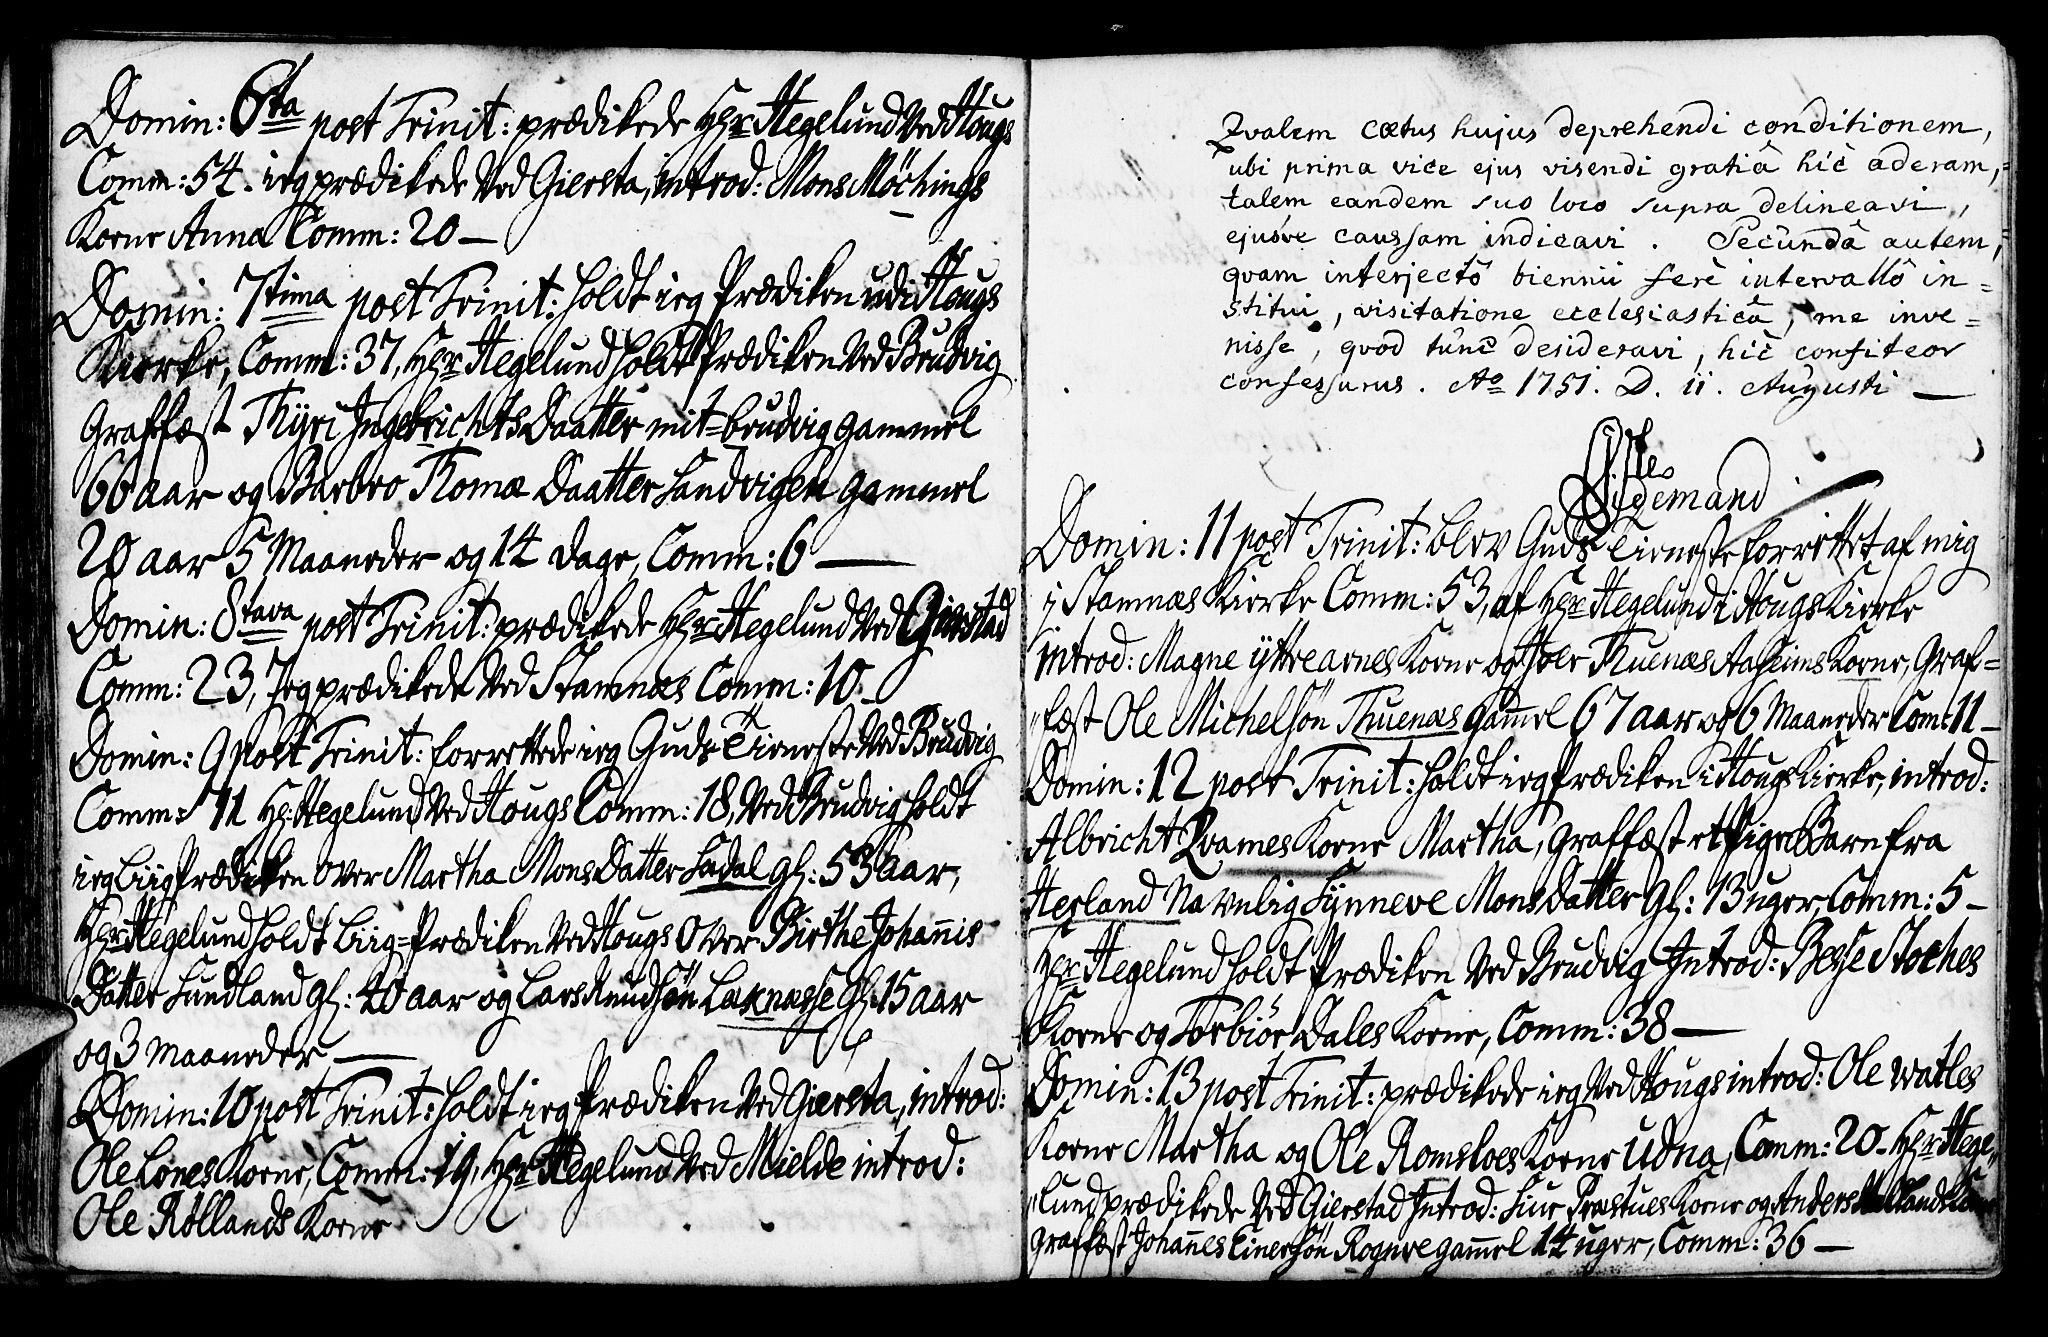 Domin: 6ta post Trinit: prædikede Hr Hegelund Ved Hougs
Comm: 54. ieg prædikede Ved Giersta, introd: Mons Möchings
Kone Anna Comm: 20 —
Domin: 7tima post Trinit: holdt ieg Prædiken udi Hougs
Kierke, Comm: 37, Hr Hegelund holdt Prædiken Ved Brudvig
Graffæst Thÿri Ingebrichts Daatter mit-brudvig gammel
60 aar og Barbro Thomæ Daatter Sandvigen gammel
20 aar 5 Maaneder og 14 dage, Comm: 6 —
Domin: 8tava post Trinit: prædikede Hr Hegelund Ved Gierstad
Comm: 23, Jeg prædikede Ved Stamnæs Comm: 10 –
Domin: 9 post Trinit: forrettede ieg Guds Tieneste Ved Brudvig
Comm: 11 Hr: Hegelund Ved Hougs Comm: 18, Ved Brudvig holdt
ieg Liig Prædiken over Martha Mons Datter Sadal gl: 53 aar,
Hr Hegelund holdt Liig-Prædiken Ved Hougs Over Birthe Johannis
Datter Sundland gl: 40 aar og Lars Knudsön Laxnæsse gl: 15 aar
og 3 maaneder —
Domin: 10 post Trinit: holdt ieg Prædiken Ved Giersta, introd:
Ole Lones Kone, Comm: 19, Hr Hegelund Ved Mielde introd:
Ole Röllands Kone
Qvalem cœtus hujus deprehendi conditionem,
ubi prima vice ejus visendi gratiâ hîc aderam,
talem eandem suo loco supra delineavi,
ejusve caussam indicavi. Secundâ autem,
qvam interjectô biennii ferè intervallô in-
stitui, visitatione ecclesiasticâ, me inve-
nisse, qvod tunc desideravi, hîc confiteor
confessurus. Ao 1751. D. 11. Augusti —
Tidemand
Domin: 11 post Trinit: blev Guds Tieneste forrettet af mig
i Stamnæs Kierke Comm: 53, af Hr Hegelund i Hougs Kierke
introd: Magne ÿttrearnes Kone og Iver Thuenæs Aasheims Kone, Graf-
fæst Ole Michelsön Thuenæs gamel 67 aar og 6 Maaneder Com: 11 –
Domin: 12 post Trinit: holdt ieg Prædiken i Hougs Kierke, introd:
Albricht Qvames Kone Martha, Graffæst et Pige Barn fra
Herland Navnlig Sÿnneve Mons Datter gl: 13 uger, Comm: 5 –
Hr Hegelund holdt Prædiken Ved Brudvig Introd: Børje Stoches
Kone og Torbiör Dales Kone, Comm: 38 —
Domin: 13 post Trinit: prædikede ieg Ved Hougs introd: Ole Watles
Kone Martha og Ole Romsloes Kone Udna, Comm: 20 – Hr Hege-
lund prædikede Ved Gierstad Introd: Siur Præstues Kone og Anders
Graffæst Johannes Einersön Rognve gamel 14 uger, Comm: 36 —